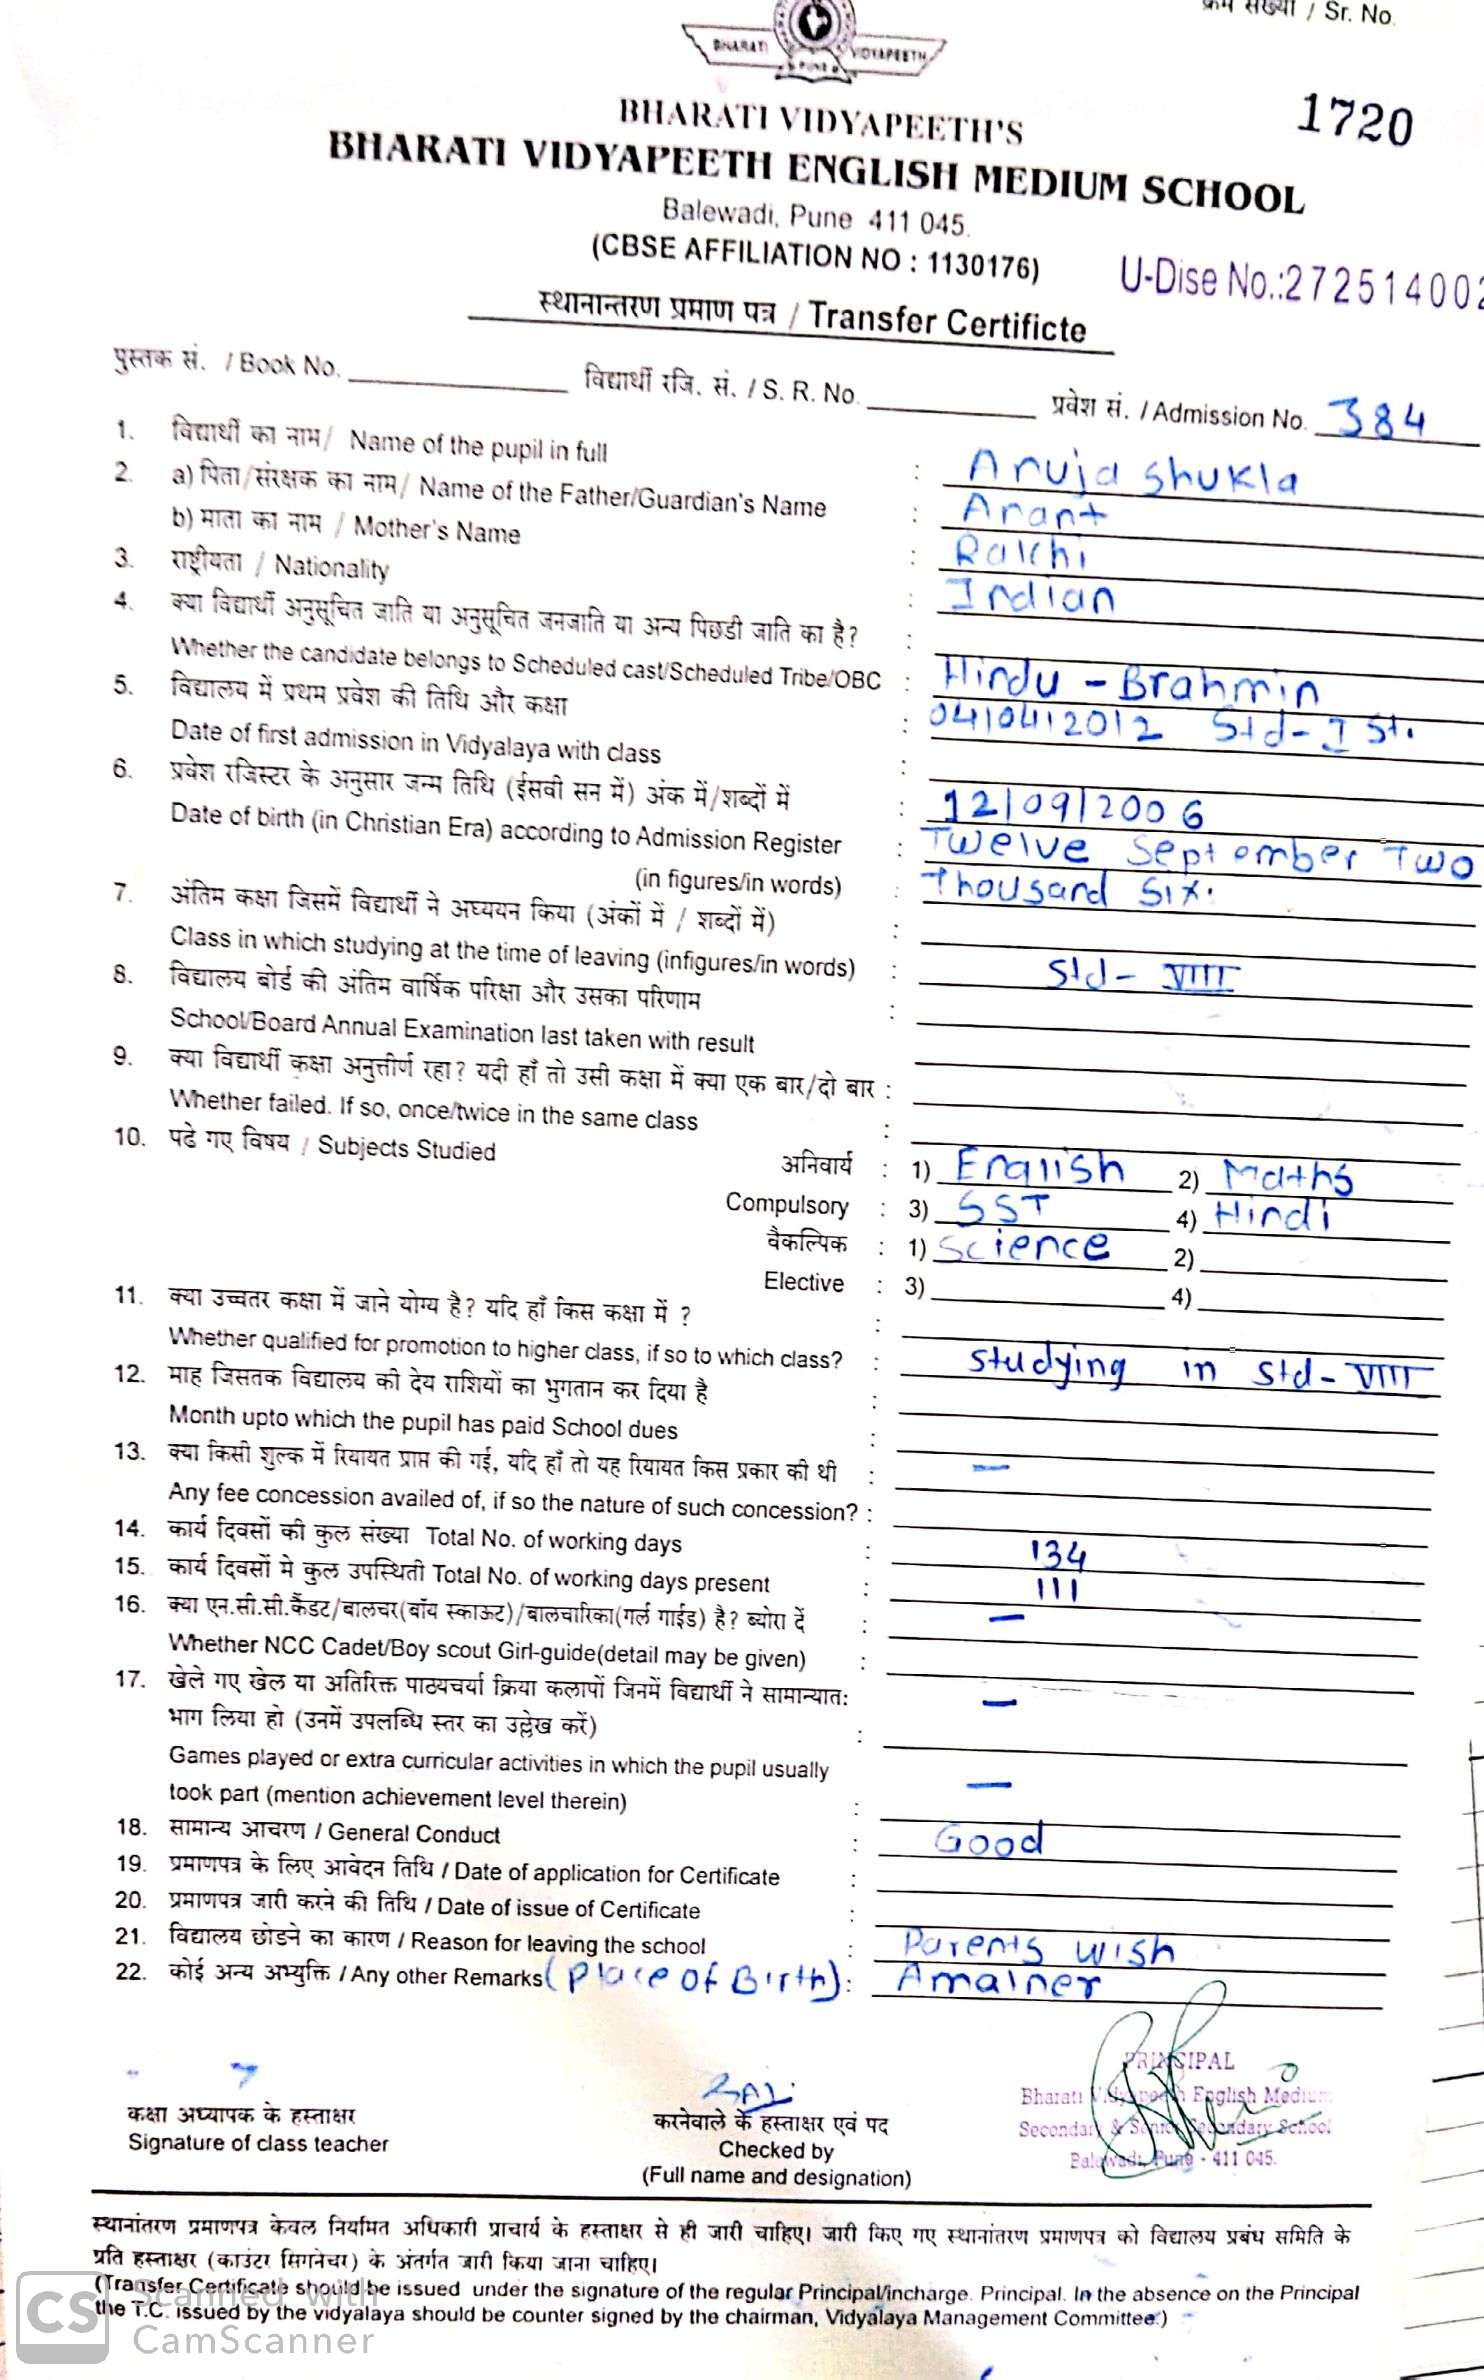 क्रम संख्या / Sr. No.
BHARATI VIDYAPEETH
PUNE
1720
BHARATI VIDYAPEETH'S
BHARATI VIDYAPEETH ENGLISH MEDIUM SCHOOL
Balewadi, Pune 411 045.
(CBSE AFFILIATION NO : 1130176)
U-Dise No.:272514002
स्थानान्तरण प्रमाण पत्र / Transfer Certificte
पुस्तक सं. / Book No. विद्यार्थी रजि. सं. / S. R. No. प्रवेश सं. / Admission No. 384
1. विद्यार्थी का नाम/ Name of the pupil in full : Anuja Shukla
2. a) पिता/संरक्षक का नाम/ Name of the Father/Guardian's Name : Anant
b) माता का नाम / Mother's Name : Rakhi
3. राष्ट्रीयता / Nationality : Indian
4. क्या विद्यार्थी अनुसूचित जाति या अनुसूचित जनजाति या अन्य पिछडी जाति का है? :
Whether the candidate belongs to Scheduled cast/Scheduled Tribe/OBC : Hindu - Brahmin
5. विद्यालय में प्रथम प्रवेश की तिथि और कक्षा : 04/04/2012 Std- I St.
Date of first admission in Vidyalaya with class :
6. प्रवेश रजिस्टर के अनुसार जन्म तिथि (ईसवी सन में) अंक में/शब्दों में : 12/09/2006
Date of birth (in Christian Era) according to Admission Register : Twelve September Two
(in figures/in words) : Thousand Six.
7. अंतिम कक्षा जिसमें विद्यार्थी ने अघ्ययन किया (अंकों में / शब्दों में) :
Class in which studying at the time of leaving (infigures/in words) : Std- VIII
8. विद्यालय बोर्ड की अंतिम वार्षिक परिक्षा और उसका परिणाम :
School/Board Annual Examination last taken with result
9. क्या विद्यार्थी कक्षा अनुत्तीर्ण रहा? यदी हाँ तो उसी कक्षा में क्या एक बार/दो बार :
Whether failed. If so, once/twice in the same class :
10. पढे गए विषय / Subjects Studied
अनिवार्य : 1) English 2) Maths
Compulsory : 3) SST 4) Hindi
वैकल्पिक : 1) Science 2)
Elective : 3) 4)
11. क्या उच्चतर कक्षा में जाने योग्य है? यदि हाँ किस कक्षा में ? :
Whether qualified for promotion to higher class, if so to which class? : Studying in Std- VIII
12. माह जिसतक विद्यालय की देय राशियों का भुगतान कर दिया है :
Month upto which the pupil has paid School dues :
13. क्या किसी शुल्क में रियायत प्राप्त की गई, यदि हाँ तो यह रियायत किस प्रकार की थी : —
Any fee concession availed of, if so the nature of such concession? :
14. कार्य दिवसों की कुल संख्या Total No. of working days : 134
15. कार्य दिवसों मे कुल उपस्थिती Total No. of working days present : 111
16. क्या एन.सी.सी.कैंडट/बालचर(बॉय स्काऊट)/बालचारिका(गर्ल गाईड) है? ब्योरा दें : —
Whether NCC Cadet/Boy scout Girl-guide(detail may be given) :
17. खेले गए खेल या अतिरिक्त पाठ्यचर्या क्रिया कलापों जिनमें विद्यार्थी ने सामान्यात: —
भाग लिया हो (उनमें उपलब्धि स्तर का उल्लेख करें) :
Games played or extra curricular activities in which the pupil usually —
took part (mention achievement level therein) :
18. सामान्य आचरण / General Conduct : Good
19. प्रमाणपत्र के लिए आवेदन तिथि / Date of application for Certificate :
20. प्रमाणपत्र जारी करने की तिथि / Date of issue of Certificate :
21. विद्यालय छोडने का कारण / Reason for leaving the school : Parents wish
22. कोई अन्य अभ्युक्ति / Any other Remarks (Place of Birth) : Amalner
PRINCIPAL
Bharati Vidyapeeth English Medium
Secondary & Senior Secondary School
Balewadi, Pune - 411 045.
कक्षा अध्यापक के हस्ताक्षर
Signature of class teacher
करनेवाले के हस्ताक्षर एवं पद
Checked by
(Full name and designation)
स्थानांतरण प्रमाणपत्र केवल नियमित अधिकारी प्राचार्य के हस्ताक्षर से ही जारी चाहिए। जारी किए गए स्थानांतरण प्रमाणपत्र को विद्यालय प्रबंध समिति के
प्रति हस्ताक्षर (काउंटर सिगनेचर) के अंतर्गत जारी किया जाना चाहिए।
(Transfer Certificate should be issued under the signature of the regular Principal/incharge. Principal. In the absence on the Principal
the T.C. issued by the vidyalaya should be counter signed by the chairman, Vidyalaya Management Committee.)
CS Scanned with
CamScanner